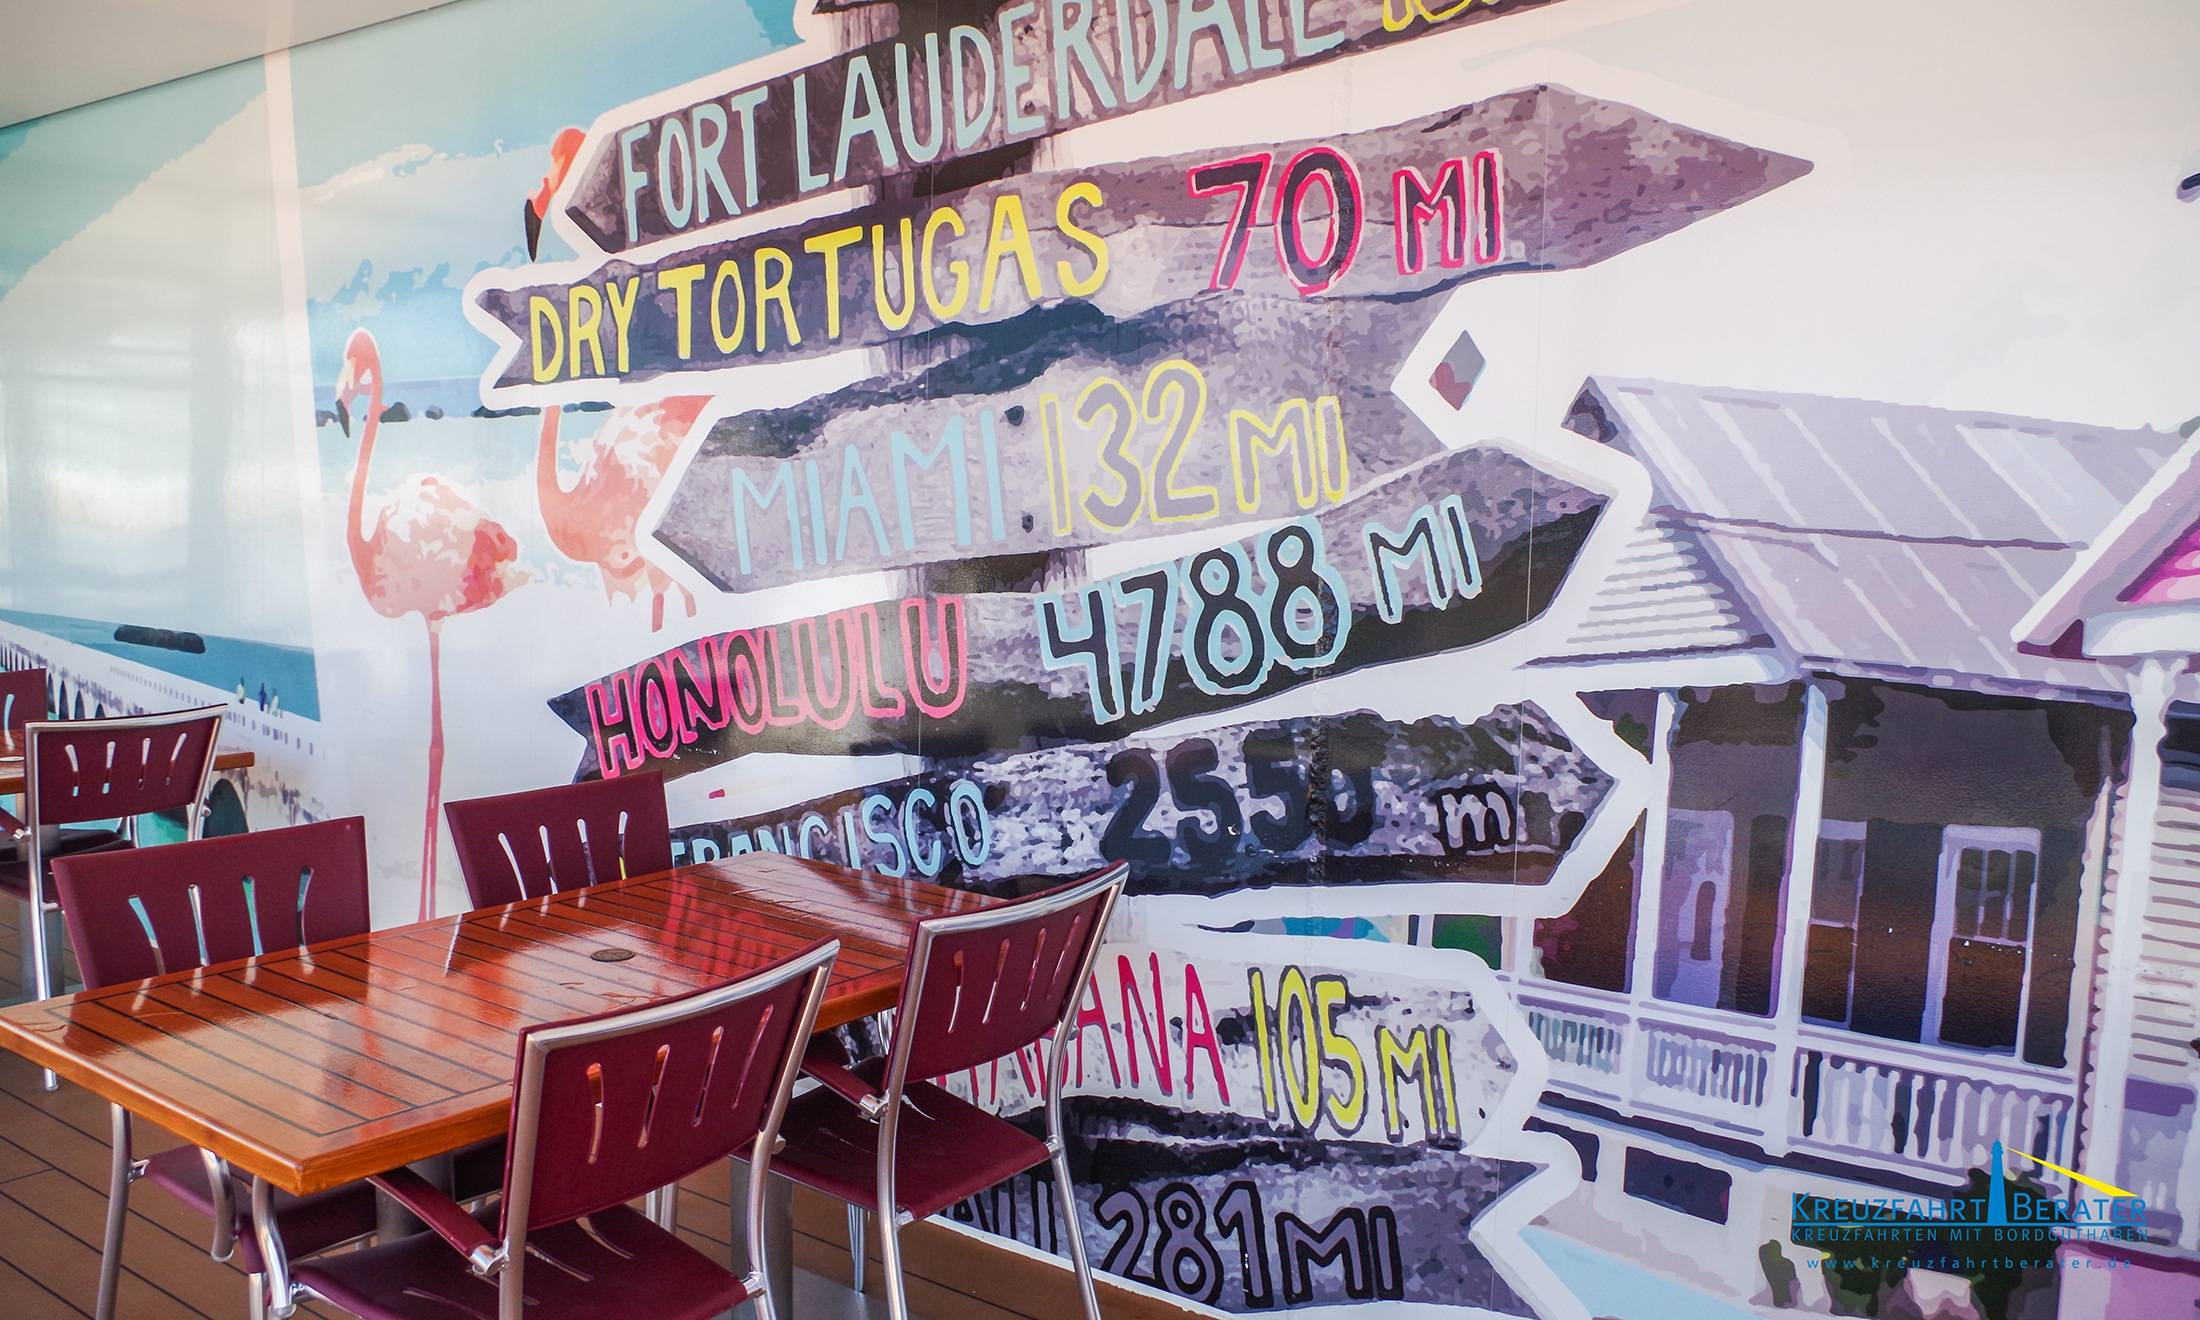 FORT LAUDERDALE
DRY TORTUGAS 70 MI
MIAMI 132 MI
HONOLULU 4788 MI
FRANCISCO 2550 m
105 MI
281 MI
KREUZFAHRT BERATER
KREUZFAHRTEN MIT BORDGUTHABEN
www.kreuzfahrtberater.de